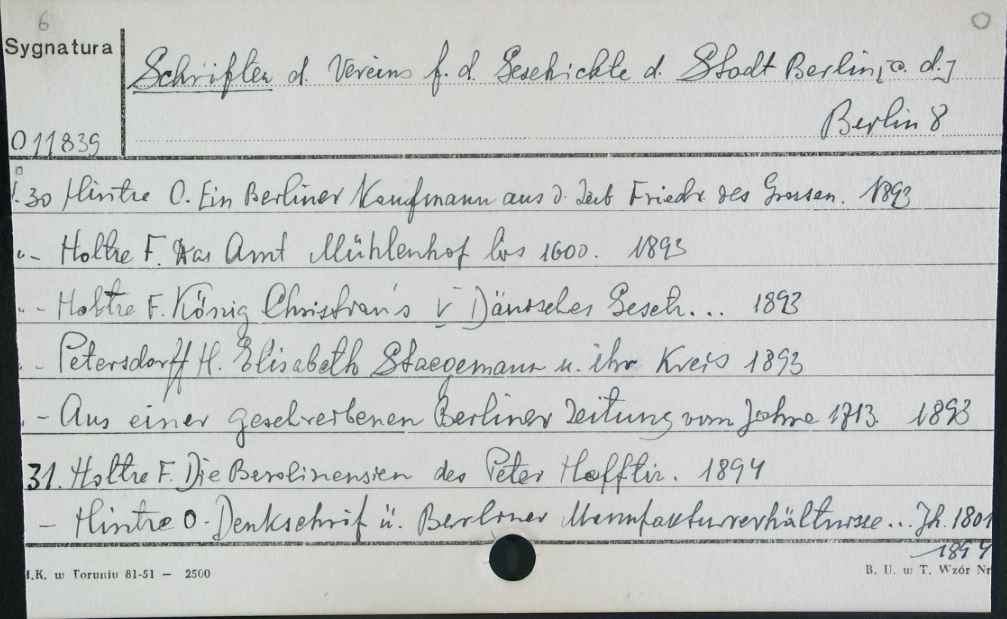 6
Sygnatura
Schriften d. Vereins f. d. Geschichte d. Stadt Berlin, a. d.]
Berlin 8
011839
30 Hintze O. Ein Berliner Kaufmann aus d. Zeit Friedr des Grossen. 1893
" - Holtze F. Das Amt Mühlenhof bis 1600. 1893
" - Holtze F. König Christian's V Dänisches Gesetz... 1893
" - Petersdorff H. Elisabeth Staegemann u. ihr Kreis 1893
" - Aus einer geschriebenen Berliner Zeitung vom Jahre 1713. 1893
31. Holtze F. Die Berolinensien des Peter Hafftiz. 1894
- Hintze O. Denkschrif ü. Berliner Manufakturverhältnisse... Jh. 1801
1894
I.K. w Toruniu 81-51 — 2500
B. U. w T. Wzór Nr